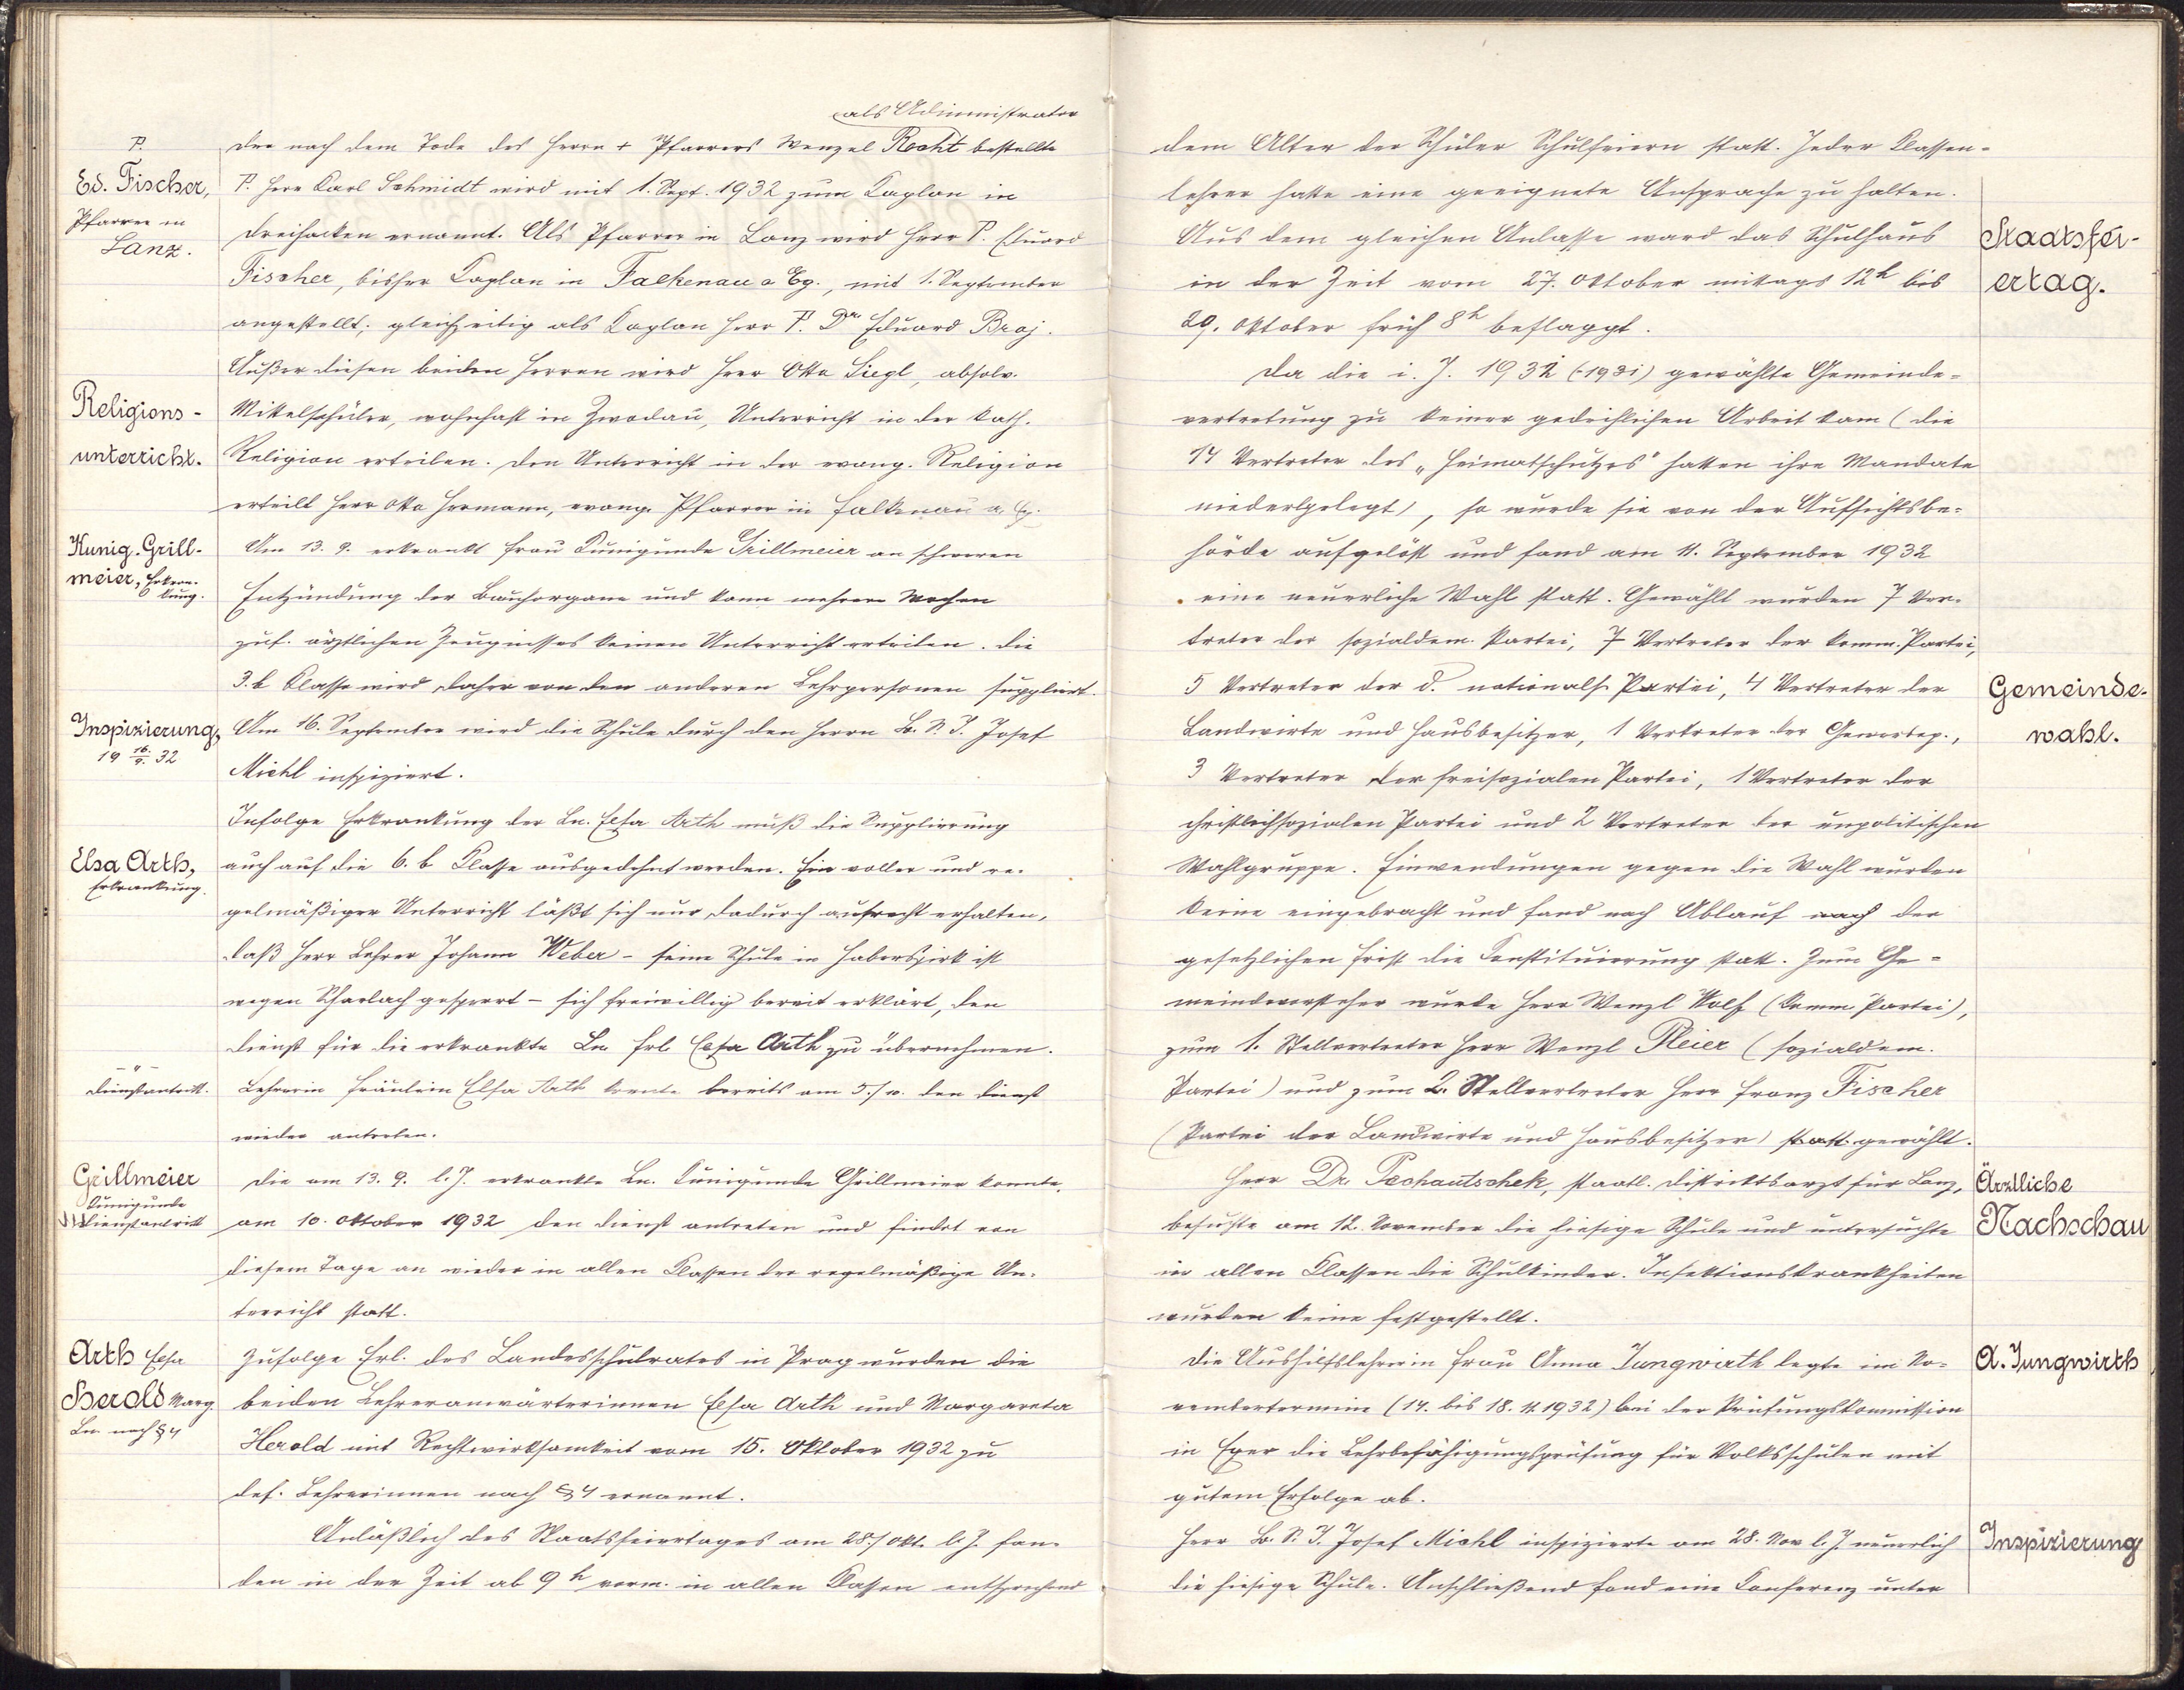 als Administrator
P.
Ed. Fischer,
Pfarrer in
Lanz.
Der nach dem Tode des Herrn + Pfarrers Wenzel Recht bestellte
P. Herr Karl Schmidt wird mit 1. Sept. 1932 zum Kaplan in
Dreihacken ernannt. Als Pfarrer in Lanz wird Herr P. Eduard
Fischer, bisher Kaplan in Falkenau a Eg., mit 1. September
angestellt; gleichzeitig als Kaplan Herr P. Dr Eduard Braj.
Außer diesen beiden Herren wird Herr Otto Siegl, absolv.
Religions-
unterricht.
Mittelschüler, wohnhaft in Zwodau, Unterricht in der kath.
Religion erteilen. Den Unterricht in der evang. Religion
erteilt Herr Otto Hermann, evang. Pfarrer in Falkenau a. Eg.
Kunig. Grill-
meier, Erkran-
kung.
Am 13. 9. erkrankt Frau Kunigunde Grillmeier an schweren
Entzündung der Bauchorgane und kann mehrere Wochen
zuf. ärztlichen Zeugnisses keinen Unterricht erteilen. Die
3. b Klasse wird daher von den anderen Lehrpersonen suppliert.
Inspizierung,
19 16./9. 32
Am 16. September wird die Schule durch den Herrn B. S. I. Josef
Michl inspiziert.
Infolge Erkrankung der Ln. Elsa Arth muß die Supplierung
Elsa Arth,
Erkrankung.
auch auf die 6. b Klasse ausgedehnt werden. Ein voller und re-
gelmäßiger Unterricht läßt sich nur dadurch aufrecht erhalten,
daß Herr Lehrer Johann Weber – seine Schule in Haberspirk ist
wegen Scharlach gesperrt – sich freiwillig bereit erklärt, den
Dienst für die erkrankte Ln Frl Elsa Arth zu übernehmen.
- " -
Dienstantritt.
Lehrerin Fräulein Elsa Arth konnte bereits am 5./10. den Dienst
wieder antreten.
Grillmeier
Kunigunde
Dienstantritt
Die am 13. 9. l. J. erkrankte Ln. Kunigunde Grillmeier konnte,
am 10. Oktober 1932 den Dienst antreten und findet von
diesem Tage an wieder in allen Klassen der regelmäßige Un-
terricht statt.
Arth Elsa
Herold Marg.
Ln. nach § 4
Zufolge Erl. des Landesschulrates in Prag wurden die
beiden Lehreranwärterinnen Elsa Arth und Margareta
Herold mit Rechtwirksamkeit vom 15. Oktober 1932 zu
def. Lehrerinnen nach § 4 ernannt.
Anläßlich des Staatsfeiertages am 28./Okt. l. J. fan-
den in der Zeit ab 9 h vorm. in allen Klassen entsprechend
dem Alter der Schüler Schulfeiern statt. Jeder Klassen-
lehrer hatte eine geeignete Ansprache zu halten.
Staatsfei-
ertag.
Aus dem gleichen Anlasse ward das Schulhaus
in der Zeit vom 27. Oktober mittags 12 h bis
29. Oktober früh 8 h beflaggt.
Da die i. J. 1932 (-1931) gewählte Gemeinde-
vertretung zu keiner gedeihlichen Arbeit kam (die
14 Vertreter des „Heimatschutzes" hatten ihre Mandate
niedergelegt), so wurde sie von der Aufsichtsbe-
hörde aufgelöst und fand am 11. September 1932
eine neuerliche Wahl statt. Gewählt wurden 7 Ver-
treter der sozialdem. Partei, 7 Vertreter der komm. Partei,
Gemeinde-
wahl.
5 Vertreter der d. national. Partei, 4 Vertreter der
Landwirte und Hausbesitzer, 1 Vertreter der Gewerbep.,
3 Vertreter der freisozialen Partei, 1 Vertreter der
christlichsozialen Partei und 2 Vertreter der unpolitischen
Wahlgruppe. Einwendungen gegen die Wahl wurden
keine eingebracht und fand nach Ablauf nach der
gesetzlichen Frist die Konstituierung statt. Zum Ge-
meindevorsteher wurde Herr Wenzl Wolf (komm. Partei),
zum 1. Stellvertreter Herr Wenzl Pleier (sozialdem.
Partei) und zum 2. Stellvertreter Herr Franz Fischer
(Partei der Landwirte und Hausbesitzer) statt gewählt.
Ärztliche
Nachschau
Herr Dr. Pechautschek, staatl. Distriktsarzt für Lanz,
besuchte am 12. November die hiesige Schule und untersuchte
in allen Klassen die Schulkinder. Infektionskrankheiten
wurden keine festgestellt.
A. Jungwirth
Die Aushilfslehrerin Frau Anna Jungwirth legte im No-
vembertermine (14. bis 18. 11. 1932) bei der Prüfungskommission
in Eger die Lehrbefähigungsprüfung für Volksschulen mit
gutem Erfolge ab.
Inspizierung
Herr B. S. I. Josef Michl inspizierte am 28. Nov l. J. neuerlich
die hiesige Schule. Anschließend fand eine Konferenz unter